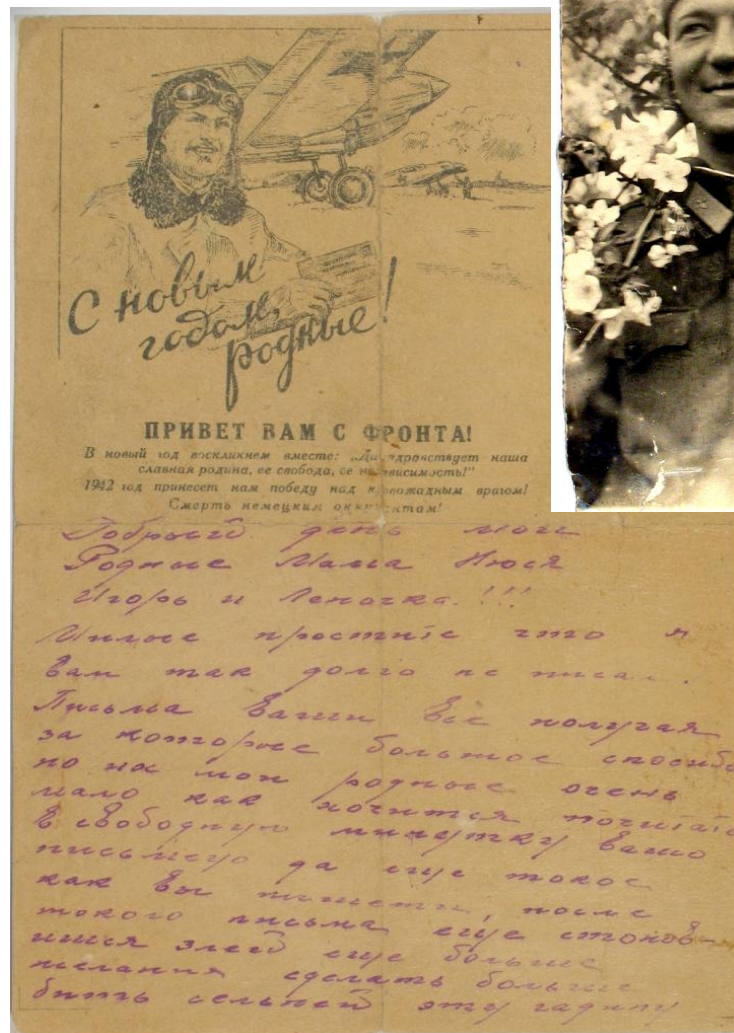 С новым
годом,
родные!
ПРИВЕТ ВАМ С ФРОНТА!
В новый год воскликнем вместе: „Да здравствует наша
славная родина, ее свобода, ее независимость!"
1942 год принесет нам победу над кровожадным врагом!
Смерть немецким оккупантам!
Добрый день мои
Родные Мама Нюся
Игорь и Леночка.!!!
Милые простите что я
вам так долго не писал.
Письма Ваши все получая
за которые большое спасибо
но их мои родные очень
мало как хочится почитать
в свободную минутку Вашо
письмецо да еще такое
как Вы пишети, после
такого письма еще станов-
ишся злей еще больше
желания сделать больше
бить сельней эту гадину